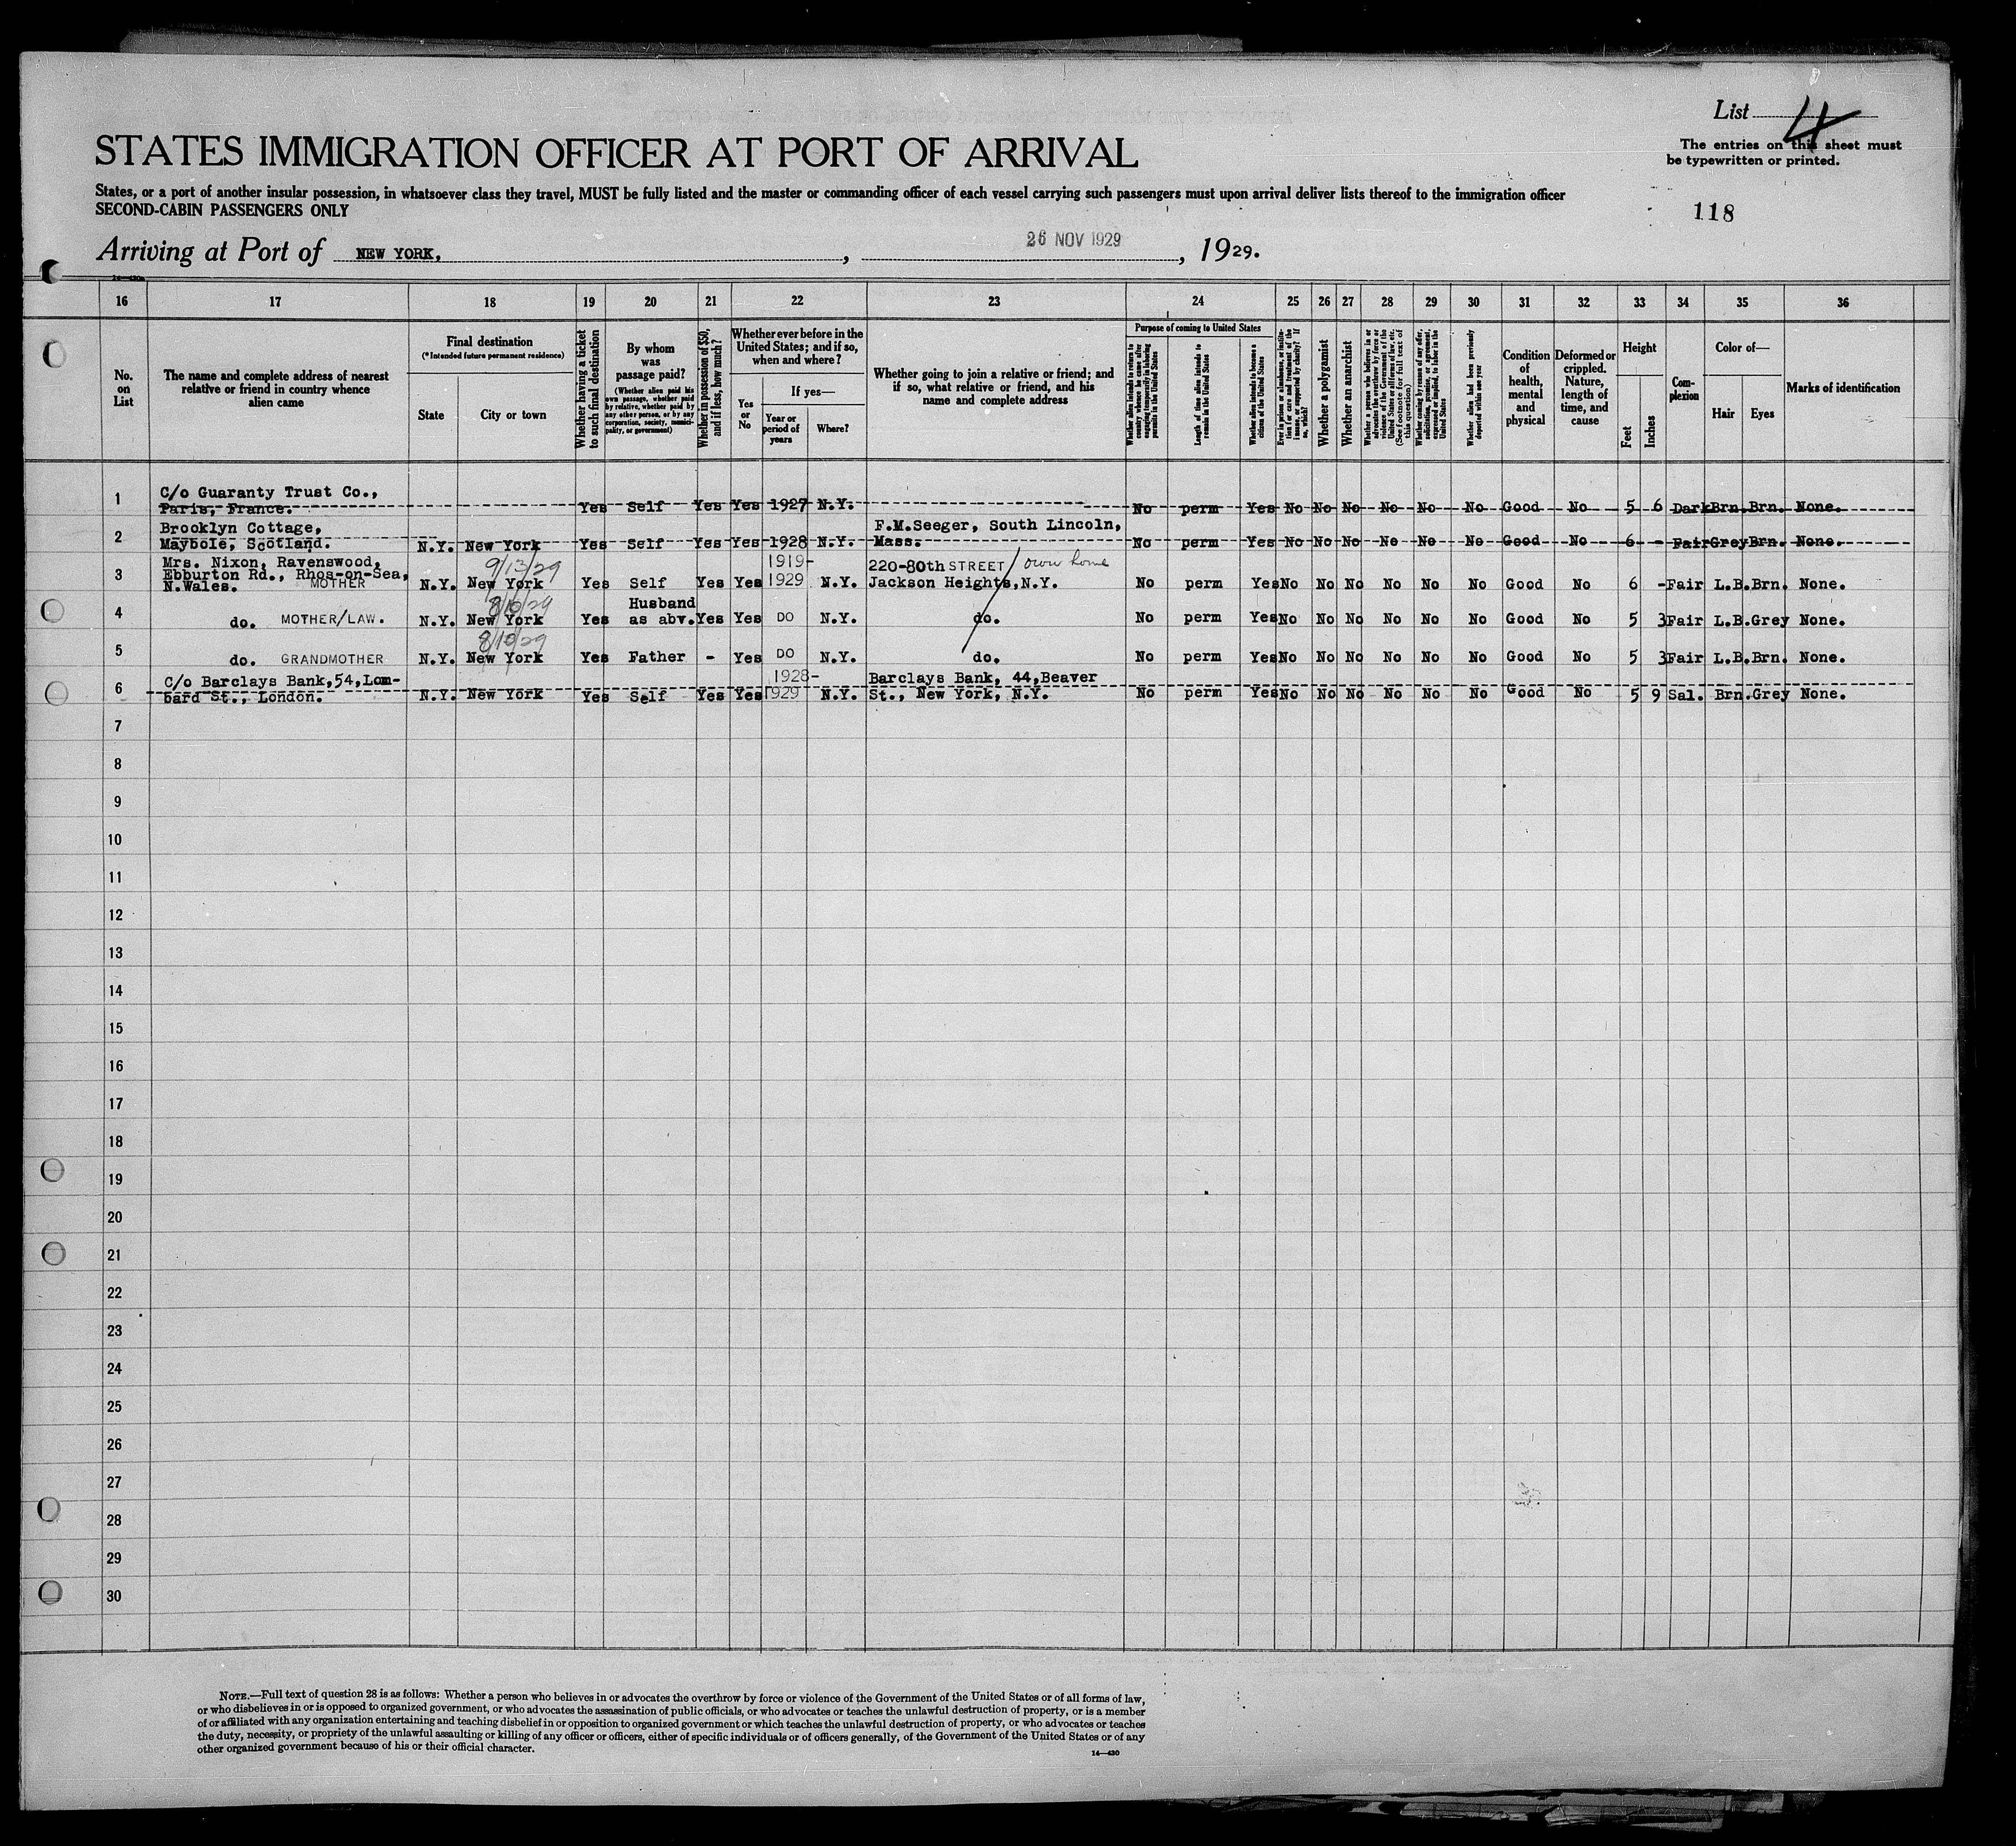 List 4
The entries on this sheet must
be typewritten or printed.
STATES IMMIGRATION OFFICER AT PORT OF ARRIVAL
States, or a port of another insular possession, in whatsoever class they travel, MUST be fully listed and the master or commanding officer of each vessel carrying such passengers must upon arrival deliver lists thereof to the immigration officer
SECOND-CABIN PASSENGERS ONLY
118
Arriving at Port of NEW YORK, , 26 NOV 1929 , 1929.
14—430
16 17 18 19 20 21 22 23 24 25 26 27 28 29 30 31 32 33 34 35 36
No. on List
The name and complete address of nearest relative or friend in country whence alien came
Final destination
(*Intended future permanent residence)
State
City or town
Whether having a ticket to such final destination
By whom was passage paid?
(Whether alien paid his own passage, whether paid by relative, whether paid by any other person, or by any corporation, society, municipality, or government)
Whether in possession of $50, and if less, how much?
Whether ever before in the United States; and if so, when and where?
Yes or No
If yes—
Year or period of years
Where?
Whether going to join a relative or friend; and if so, what relative or friend, and his name and complete address
Purpose of coming to United States
Whether alien intends to return to country whence he came after engaging temporarily in laboring pursuits in the United States
Length of time alien intends to remain in the United States
Whether alien intends to become a citizen of the United States
Ever in prison or almshouse, or institution for care and treatment of the insane, or supported by charity? If so, which?
Whether a polygamist
Whether an anarchist
Whether a person who believes in or advocates the overthrow by force or violence of the Government of the United States or all forms of law, etc. (See footnote for full text of this question)
Whether coming by reason of any offer, solicitation, promise, or agreement, expressed or implied, to labor in the United States
Whether alien had been previously deported within one year
Condition of health, mental and physical
Deformed or crippled. Nature, length of time, and cause
Height
Feet
Inches
Complexion
Color of—
Hair
Eyes
Marks of identification
1 C/o Guaranty Trust Co.,
Paris, France. Yes Self Yes Yes 1927 N.Y. No perm Yes No No No No No No Good No 5 6 Dark Brn. Brn. None.
2 Brooklyn Cottage, F.M.Seeger, South Lincoln,
Maybole, Scotland. N.Y. New York Yes Self Yes Yes 1928 N.Y. Mass. No perm Yes No No No No No No Good No 6 - Fair Grey Brn. None.
3 Mrs. Nixon, Ravenswood, 9/13/29 1919- 220-80th STREET / own home
Ebburton Rd., Rhos-on-Sea,
N.Wales. MOTHER N.Y. New York Yes Self Yes Yes 1929 N.Y. Jackson Heights,N.Y. No perm Yes No No No No No No Good No 6 - Fair L.B. Brn. None.
8/10/29 Husband
4 do. MOTHER/LAW. N.Y. New York Yes as abv. Yes Yes DO N.Y. do. No perm Yes No No No No No No Good No 5 3 Fair L.B. Grey None.
8/10/29
5 do. GRANDMOTHER N.Y. New York Yes Father - Yes DO N.Y. do. No perm Yes No No No No No No Good No 5 3 Fair L.B. Brn. None.
6 C/o Barclays Bank,54,Lom- 1928- Barclays Bank, 44,Beaver
bard St., London. N.Y. New York Yes Self Yes Yes 1929 N.Y. St., New York, N.Y. No perm Yes No No No No No No Good No 5 9 Sal. Brn. Grey None.
7
8
9
10
11
12
13
14
15
16
17
18
19
20
21
22
23
24
25
26
27
28
29
30
NOTE.—Full text of question 28 is as follows: Whether a person who believes in or advocates the overthrow by force or violence of the Government of the United States or of all forms of law,
or who disbelieves in or is opposed to organized government, or who advocates the assassination of public officials, or who advocates or teaches the unlawful destruction of property, or is a member
of or affiliated with any organization entertaining and teaching disbelief in or opposition to organized government or which teaches the unlawful destruction of property, or who advocates or teaches
the duty, necessity, or propriety of the unlawful assaulting or killing of any officer or officers, either of specific individuals or of officers generally, of the Government of the United States or of any
other organized government because of his or their official character.
14—430